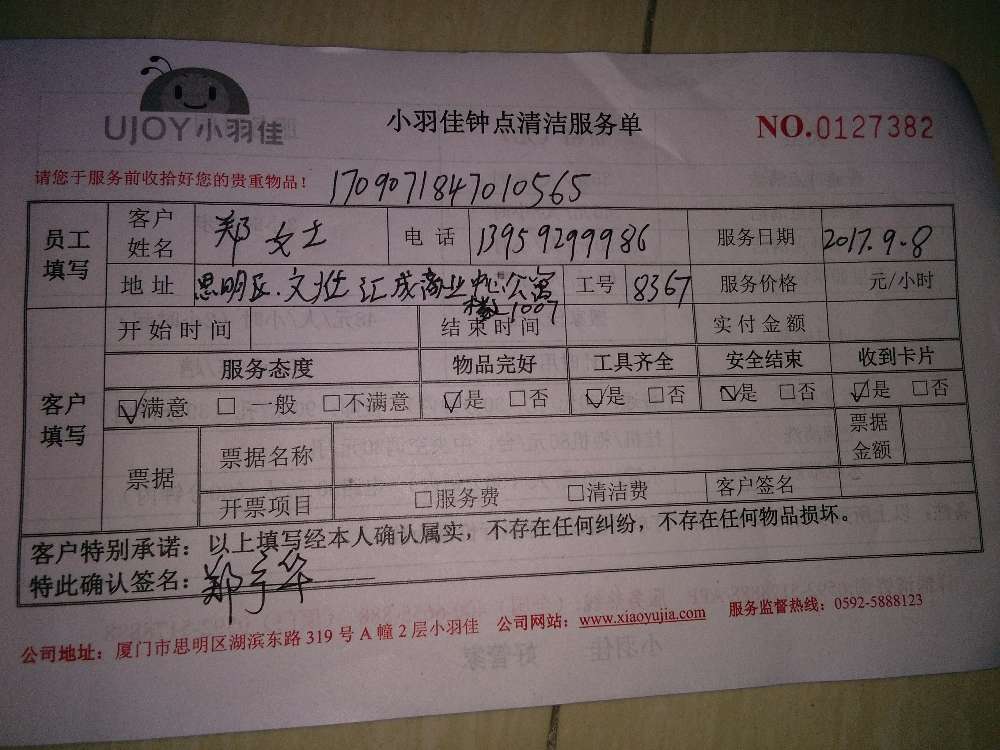 UJOY小羽佳
小羽佳钟点清洁服务单
NO.0127382
请您于服务前收拾好您的贵重物品！ 1709071847010565
员工填写 客户姓名 郑女士 电话 13959299986 服务日期 2017.9.8
地址 思明区.文灶汇成商业中心公寓楼1007 工号 8367 服务价格 元/小时
客户填写 开始时间 结束时间 实付金额
服务态度 物品完好 工具齐全 安全结束 收到卡片
☑满意 □一般 □不满意 ☑是 □否 ☑是 □否 ☑是 □否 ☑是 □否
票据 票据名称 票据金额
开票项目 □服务费 □清洁费 客户签名
客户特别承诺：以上填写经本人确认属实，不存在任何纠纷，不存在任何物品损坏。
特此确认签名：郑宇华
公司地址：厦门市思明区湖滨东路319号A幢2层小羽佳 公司网站：www.xiaoyujia.com 服务监督热线：0592-5888123